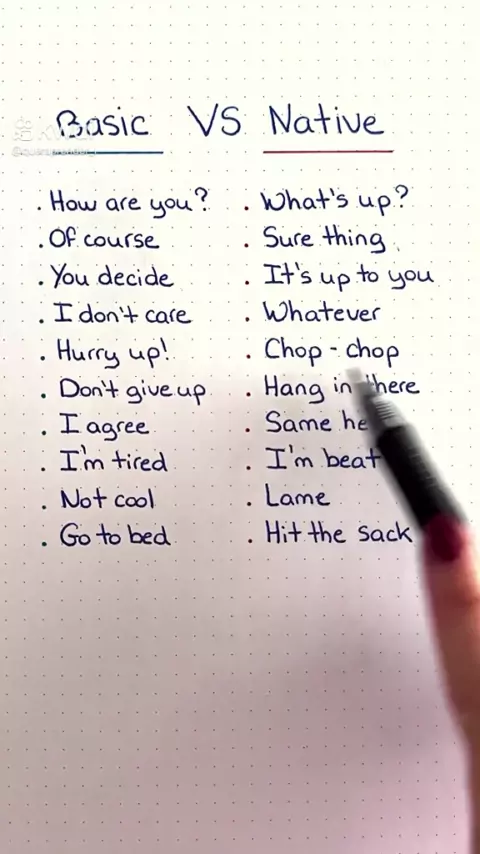 Basic VS Native
. How are you? . What's up?
. Of course . Sure thing
. You decide . It's up to you
. I don't care . Whatever
. Hurry up! . Chop - chop
. Don't give up . Hang in there
. I agree . Same he
. I'm tired . I'm beat
. Not cool . Lame
. Go to bed . Hit the sack